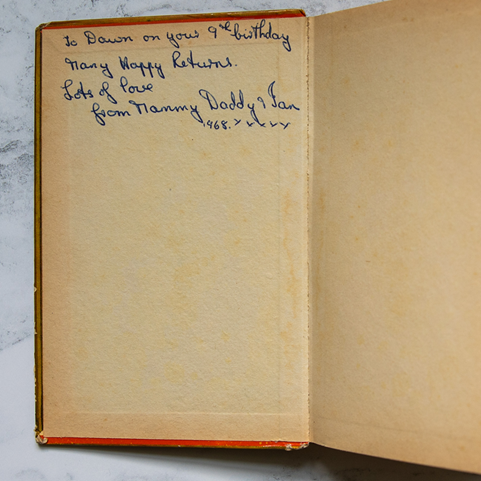 To Dawn on your 9th birthday
Many Happy Returns.
Lots of love
from Mammy Daddy & Ian
1968. x x x x x